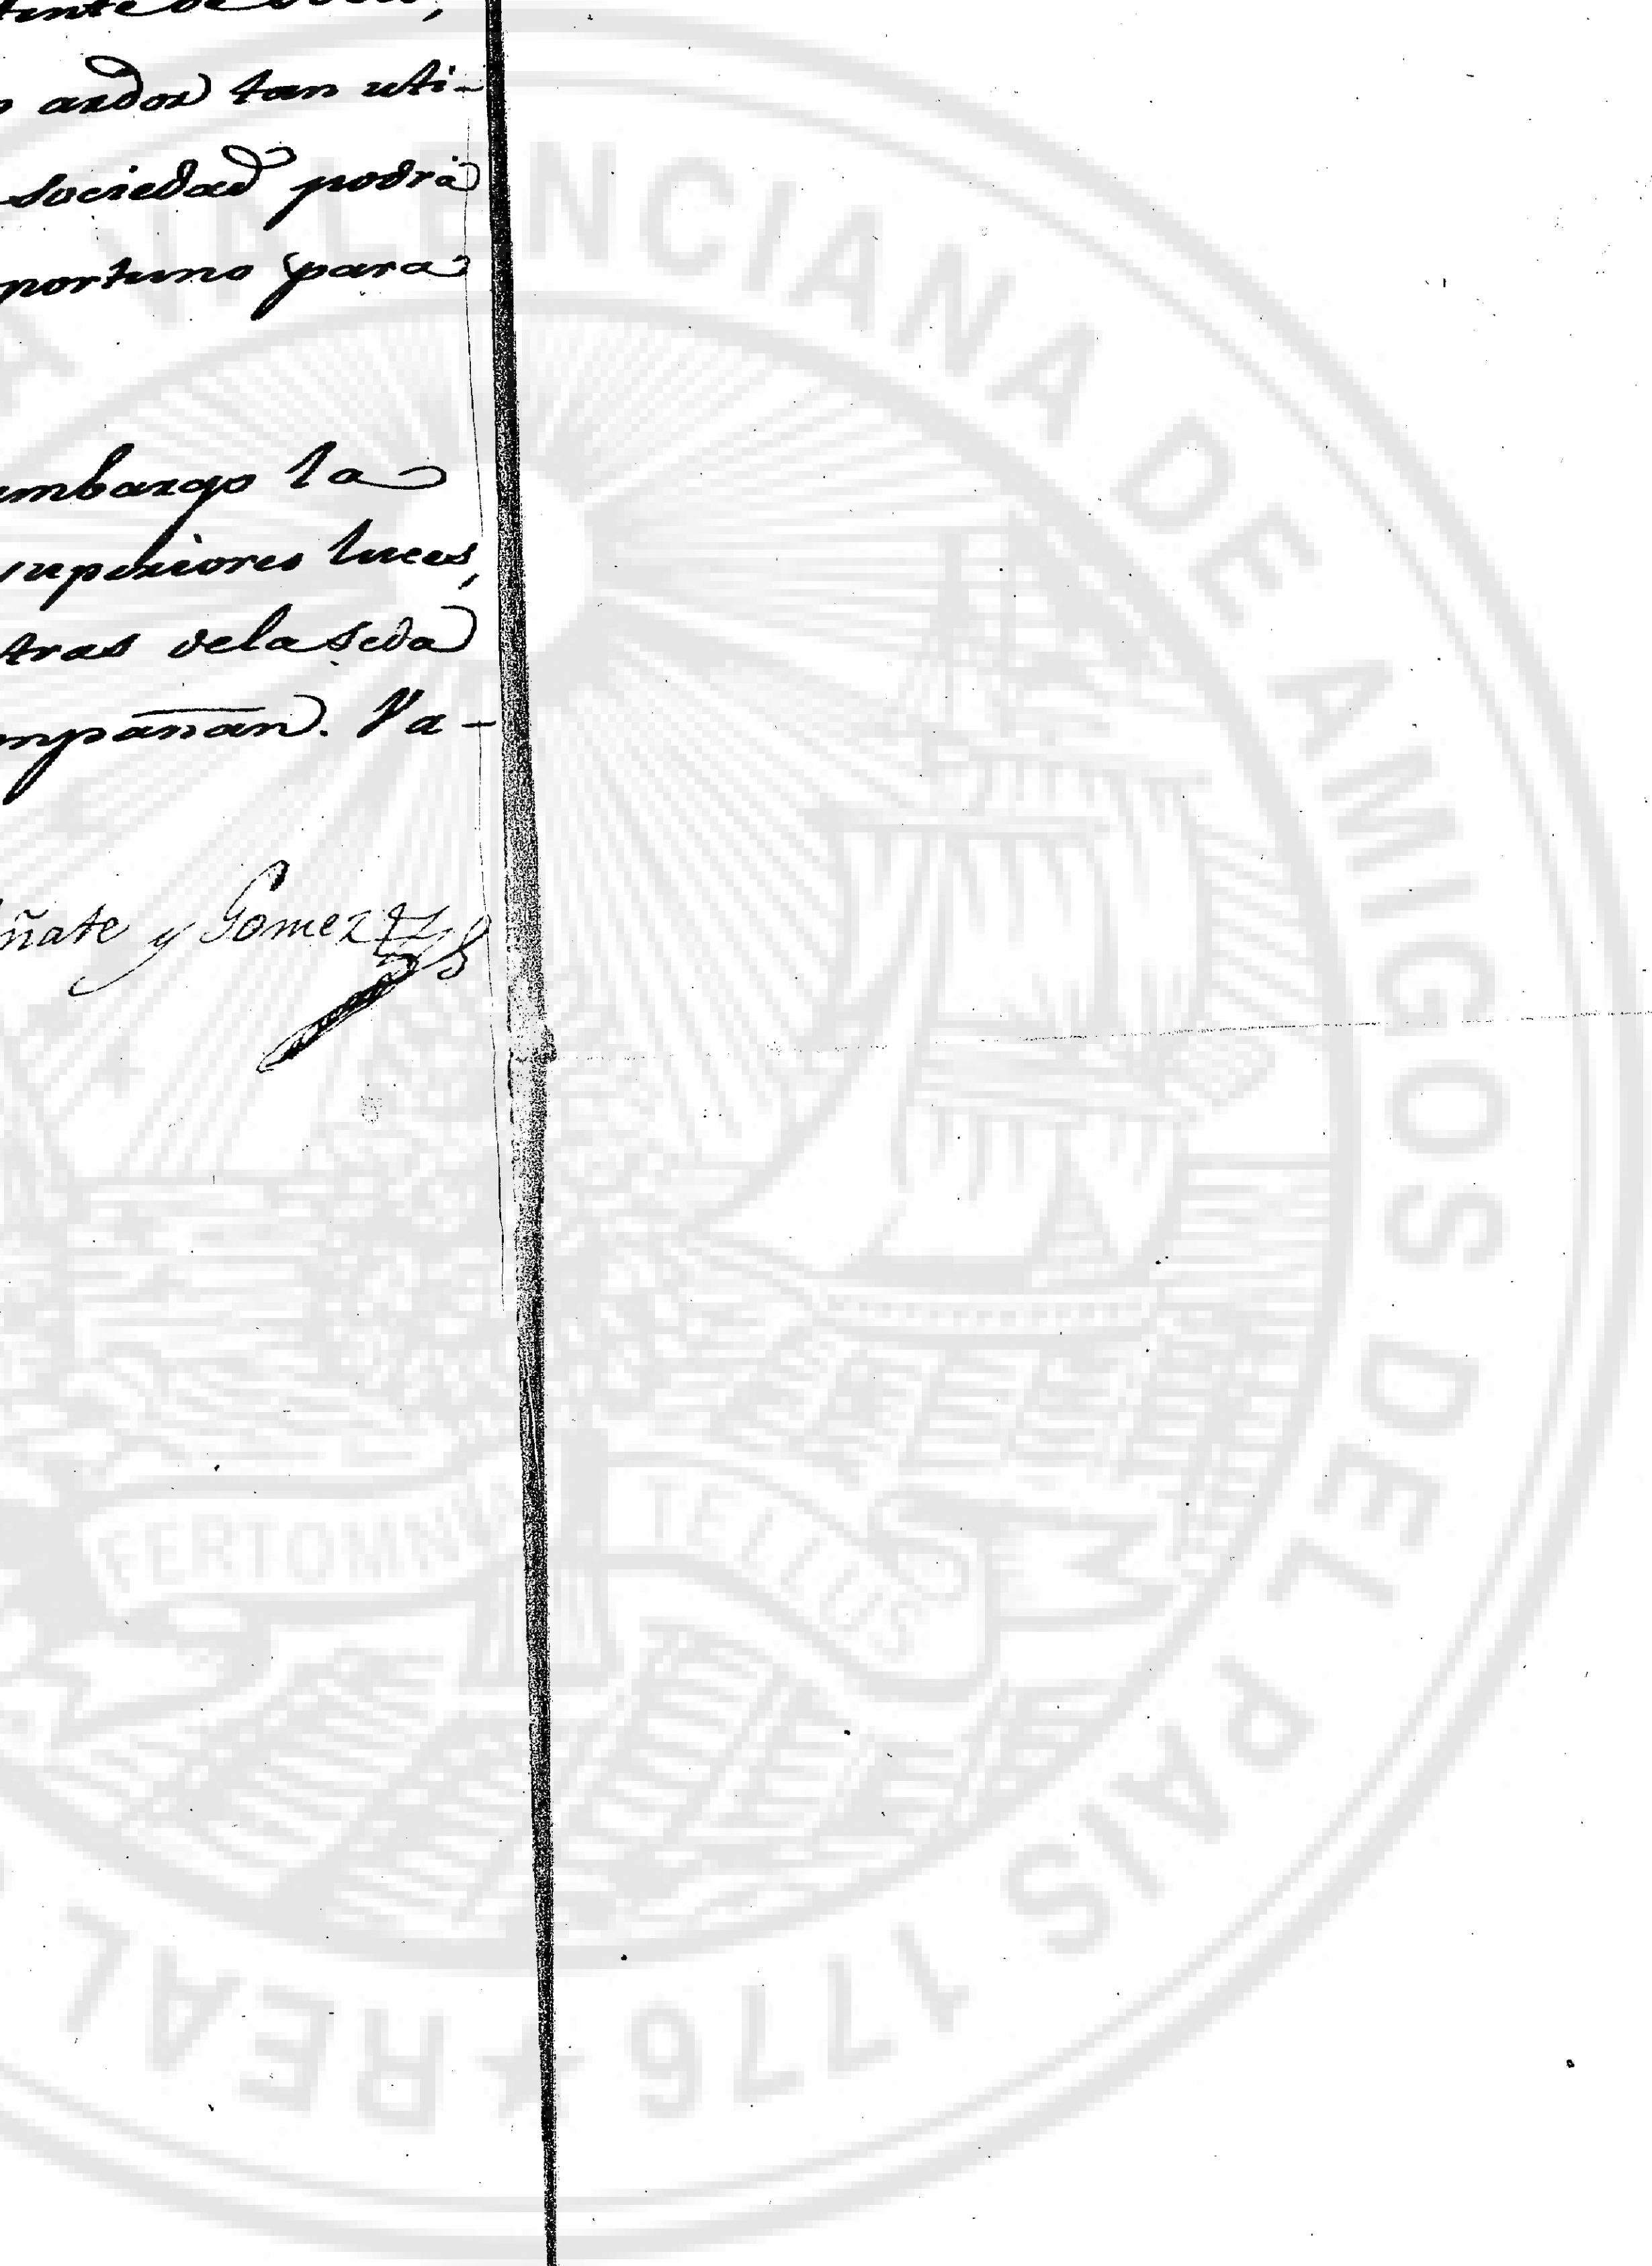 andor tan uti-
sociedad podrá
portuno para
mbargo la
superiores luces,
tras dela seda
mpañan. Va-
ñate y Gomez
VALENCIANA DE AMIGOS DEL PAIS 1776 ★ REAL
FERT OMNIA TELLUS